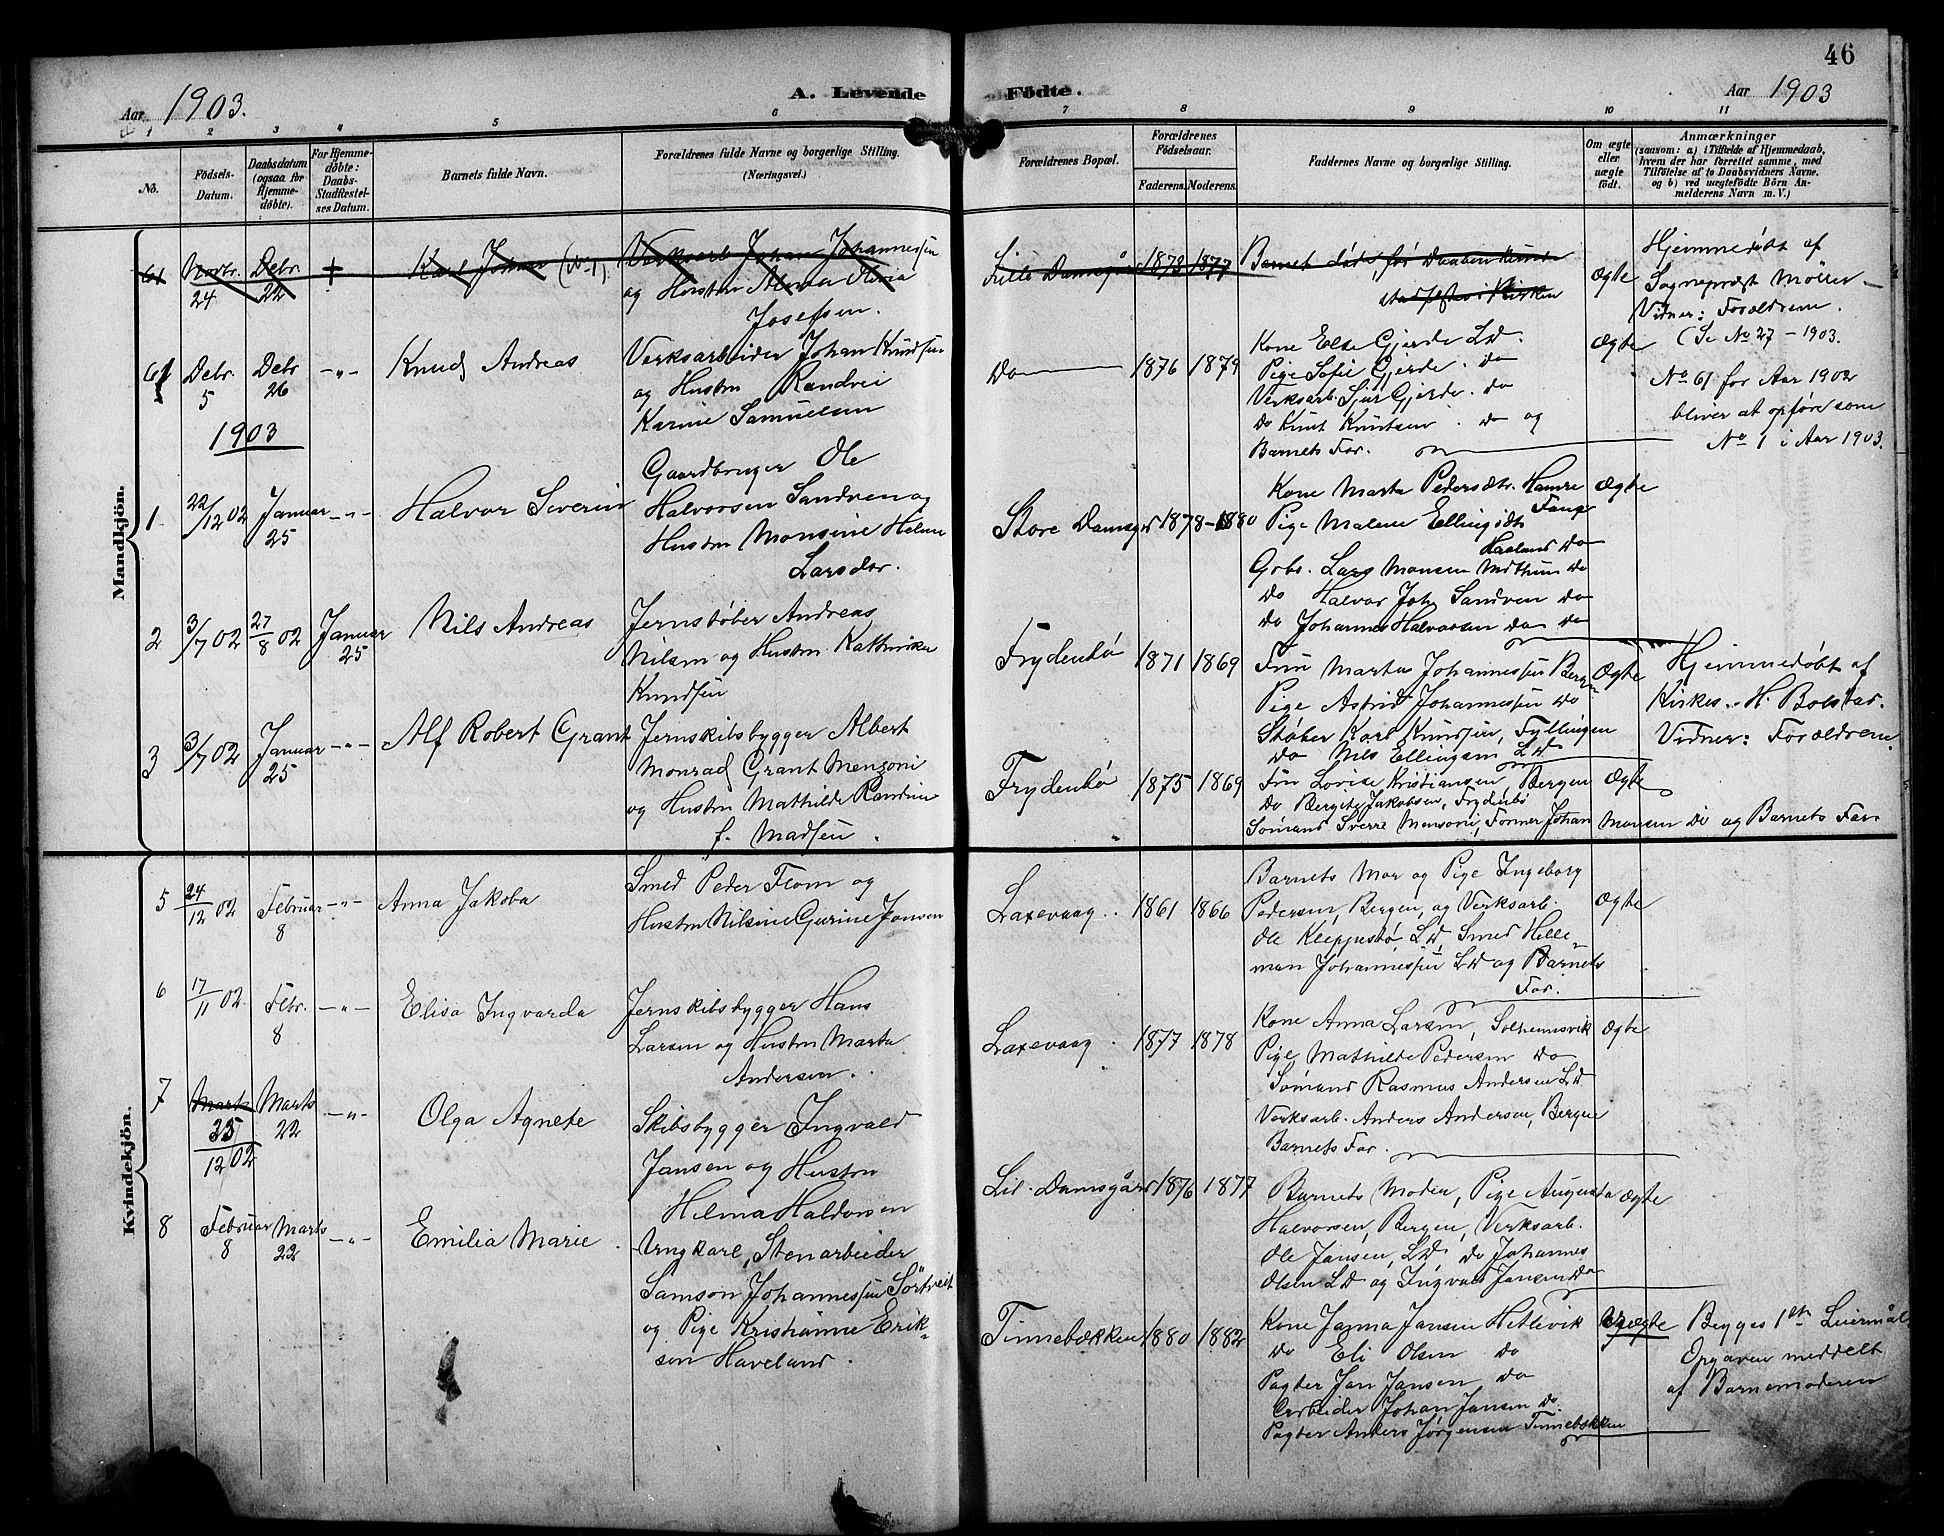 46
Aar 1903.
A. Levende
Födte.
Aar 1903
1 2 3 4 5 6 7 8 9 10 11
No.
Födsels-
Datum.
Daabsdatum
(ogsaa for
Hjemme-
döbte).
For Hjemme-
döbte:
Daabs-
Stadfæstel-
ses Datum.
Barnets fulde Navn.
Forældrenes fulde Navne og borgerlige Stilling.
(Næringsvei.)
Forældrenes Bopæl.
Forældrenes
Födselsaar.
Faderens.
Moderens.
Faddernes Navne og borgerlige Stilling.
Om ægte
eller
uægte
födt.
Anmærkninger
(saasom: a) i Tilfælde af Hjemmedaab,
hvem der har forrettet samme, med
Tilföielse af to Daabsvidners Navne.
og b) ved uægtefödte Börn An-
melderens Navn m. V.)
Mandkjön.
61 Novbr. 24
Debr. 22
Karl Johan (No 1)
Verksarb Johan Johannessen
og Hustru Olivia
Josefsen.
Lille Damsgård 1873 1877
Barnet døde før Daaben kunde
stadfæstes i Kirken
Ægte
Hjemmedøbt af
Sognepræst Möller
Vidner: Forældrene.
(Se No 27 - 1903.
61 Debr. 5
Debr 26 -"-
Knud Andreas
Verksarbeider Johan Knudsen
og Hustru Randvei
Karine Samuelsen
Do 1876 1879
Kone Else Gjerde Ld.
Pige Sofie Gjerde. do
Verksarb. Sjur Gjerde. do
Do Knut Knutsen. do og
Barnets Far.
Ægte
No 61 for Aar 1902
bliver at opföre som
No 1 i Aar 1903.
1903
1 22/12 02
Januar 25 -"-
Halvor Severin
Gaardbruger Ole
Halvorsen Sandven og
Hustru Monsine Helene
Larsdtr.
Store Damsgrd 1878-1880
Kone Marta Pedersdtr. Hamre
Pige Malene Ellingsdtr Fane
Haeland Do
Grbr. Lars Monsen Midthun Do
Do Halvor Joh Sandven Do
Do Johannes Halvorsen do do
Ægte
2 3/7 02
27/8 02
Januar 25
Nils Andreas
Jernstøber Andreas
Nilsen og Hustru Kathrine
Knudsen
Frydenbö 1871 1869
Fru Marta Johannessen Bergen
Pige Astrid Johannessen Do
Støber Karl Knudsen, Fyllingen
Do Nils Ellingsen Ld
Ægte
Hjemmedøbt af
Kirkes. H. Bolstad.
Vidner: Forældrene.
3 3/7 02
Januar 25 -"-
Alf Robert Grant
Jernskibsbygger Albert
Monrad Grant Mensoni
og Hustru Mathilde Randine
f. Madsen.
Frydenbö 1875 1869
Fru Lovise Kristiansen Bergen
Do Bergete Jakobsen, Frydenbö
Sömand Sverre Mensoni, Former Johan Monsen Do og Barnets Far.
Ægte
Kvindekjön.
5 24/12 02
Februar 8 -"-
Anna Jakoba
Smed Peder Flom og
Hustru Nilsine Gurine Jonsen
Laxevaag. 1861 1866
Barnets Mor og Pige Ingeborg
Pedersen, Bergen, og Verksarb.
Ole Kleppestö, Ld, Smed Helle-
man Johannessen Ld og Barnets
Far.
Ægte
6 17/11 02.
Febr. 8 -"-
Elisa Ingvarda
Jernskibsbygger Hans
Larsen og Hustru Marta
Andersen.
Laxevaag. 1877 1878
Kone Anna Larsen, Solheimsvik
Pige Mathilde Pedersen Do
Sömand Rasmus Andersen Ld
Verksarb. Anders Andersen, Bergen
Barnets Far.
Ægte
7 Marts
25/12 02
Marts 22 -"-
Olga Agnete
Skibsbygger Ingvald
Jansen og Hustru
Helma Haldorsen
Lil. Damsgård 1876 1877
Barnets Moder, Pige Augusta
Halvorsen, Bergen, Verksarb.
Ole Jansen, Ld do Johannes
Olsen Ld og Ingvald Jansen Do
Ægte
8 Februar 8
Marts 22 -"-
Emilia Marie.
Ungkarl, Stenarbeider
Samson Johannessen Sörtveit
og Pige Kristianne Erik-
sen Haveland.
Tinnebækken 1880 1882
Kone Janna Jansen Hetlevik
Do Eli Olsen do
Pagter Jan Jansen do
Arbeider Johan Jansen do.
Pagter Anders Jörgensen Tinnebækken
Uægte
Begges 1ste Leiermål
Opgaven meddelt
af Barnemoderen